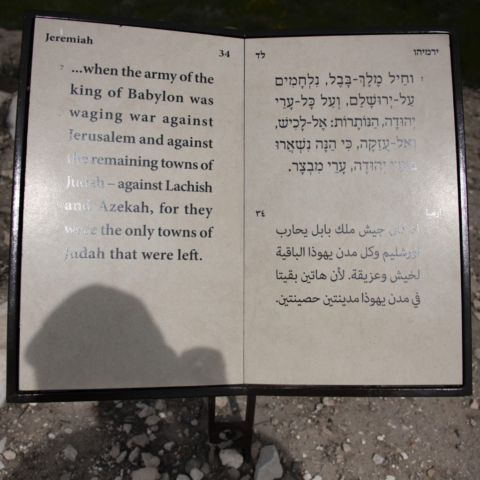 Jeremiah
34
7 ...when the army of the
king of Babylon was
waging war against
Jerusalem and against
the remaining towns of
Judah – against Lachish
and Azekah, for they
were the only towns of
Judah that were left.
לד
ירמיהו
7 וְחֵיל מֶלֶךְ-בָּבֶל, נִלְחָמִים
עַל-יְרוּשָׁלִַם, וְעַל כָּל-עָרֵי
יְהוּדָה, הַנּוֹתָרוֹת: אֶל-לָכִישׁ,
וְאֶל-עֲזֵקָה, כִּי הֵנָּה נִשְׁאֲרוּ
יְהוּדָה, עָרֵי מִבְצָר.
٣٤
جيش ملك بابل يحارب
أورشليم وكل مدن يهوذا الباقية
لخيش وعزيقة. لأن هاتين بقيتا
في مدن يهوذا مدينتين حصينتين.